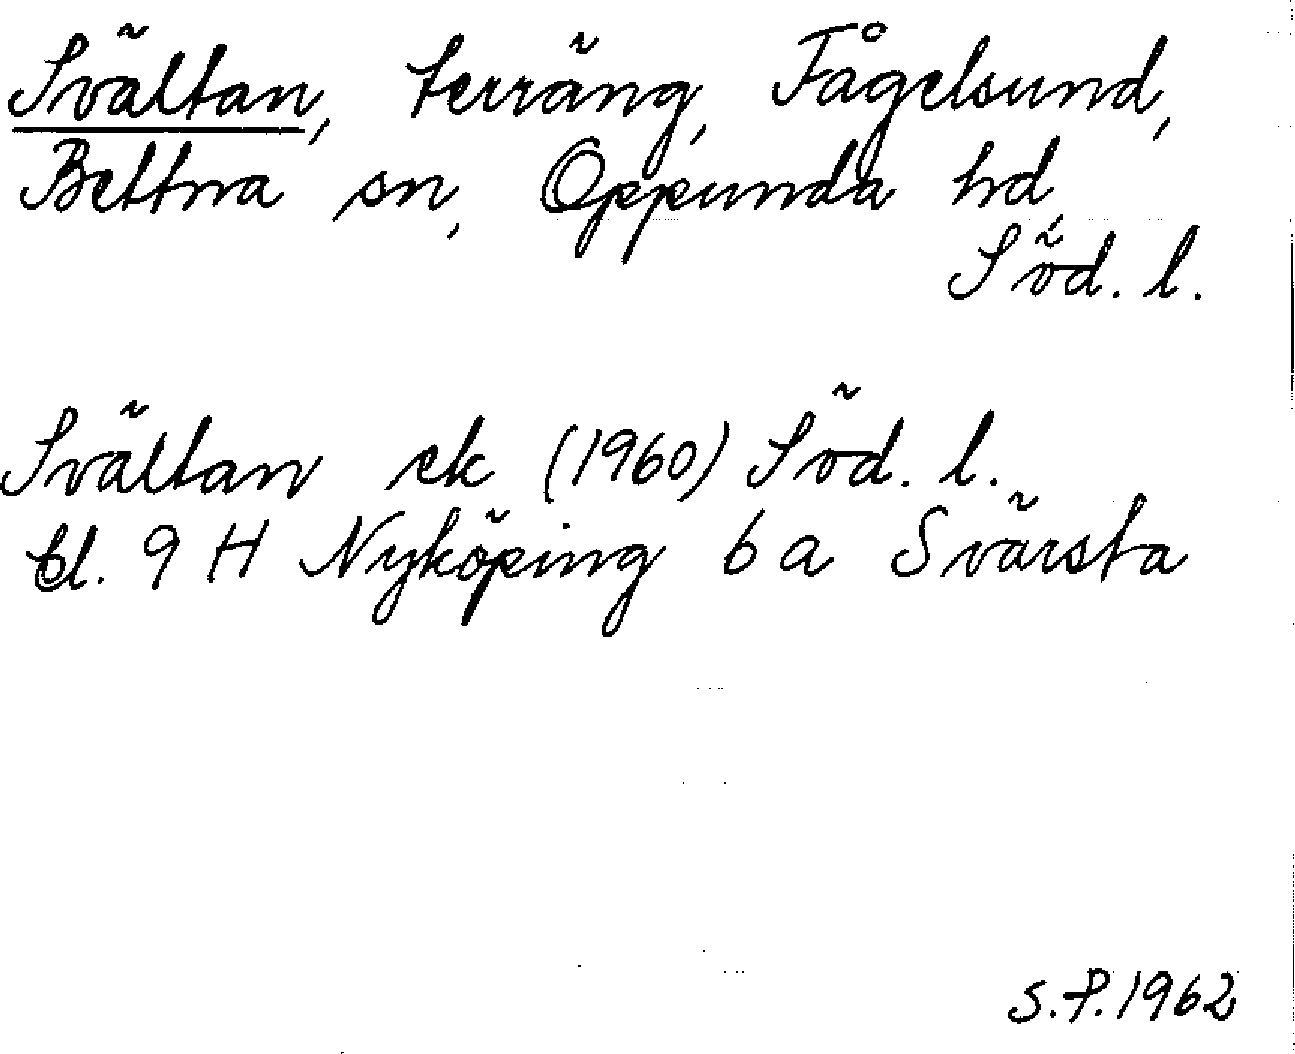 Svältan, terräng, Fågelsund,
Bettna sn, Oppunda hd,
Söd. l.
Svältan ek (1960) Söd. l.
bl. 9 H Nyköping 6 a Svärsta
S.P. 1962